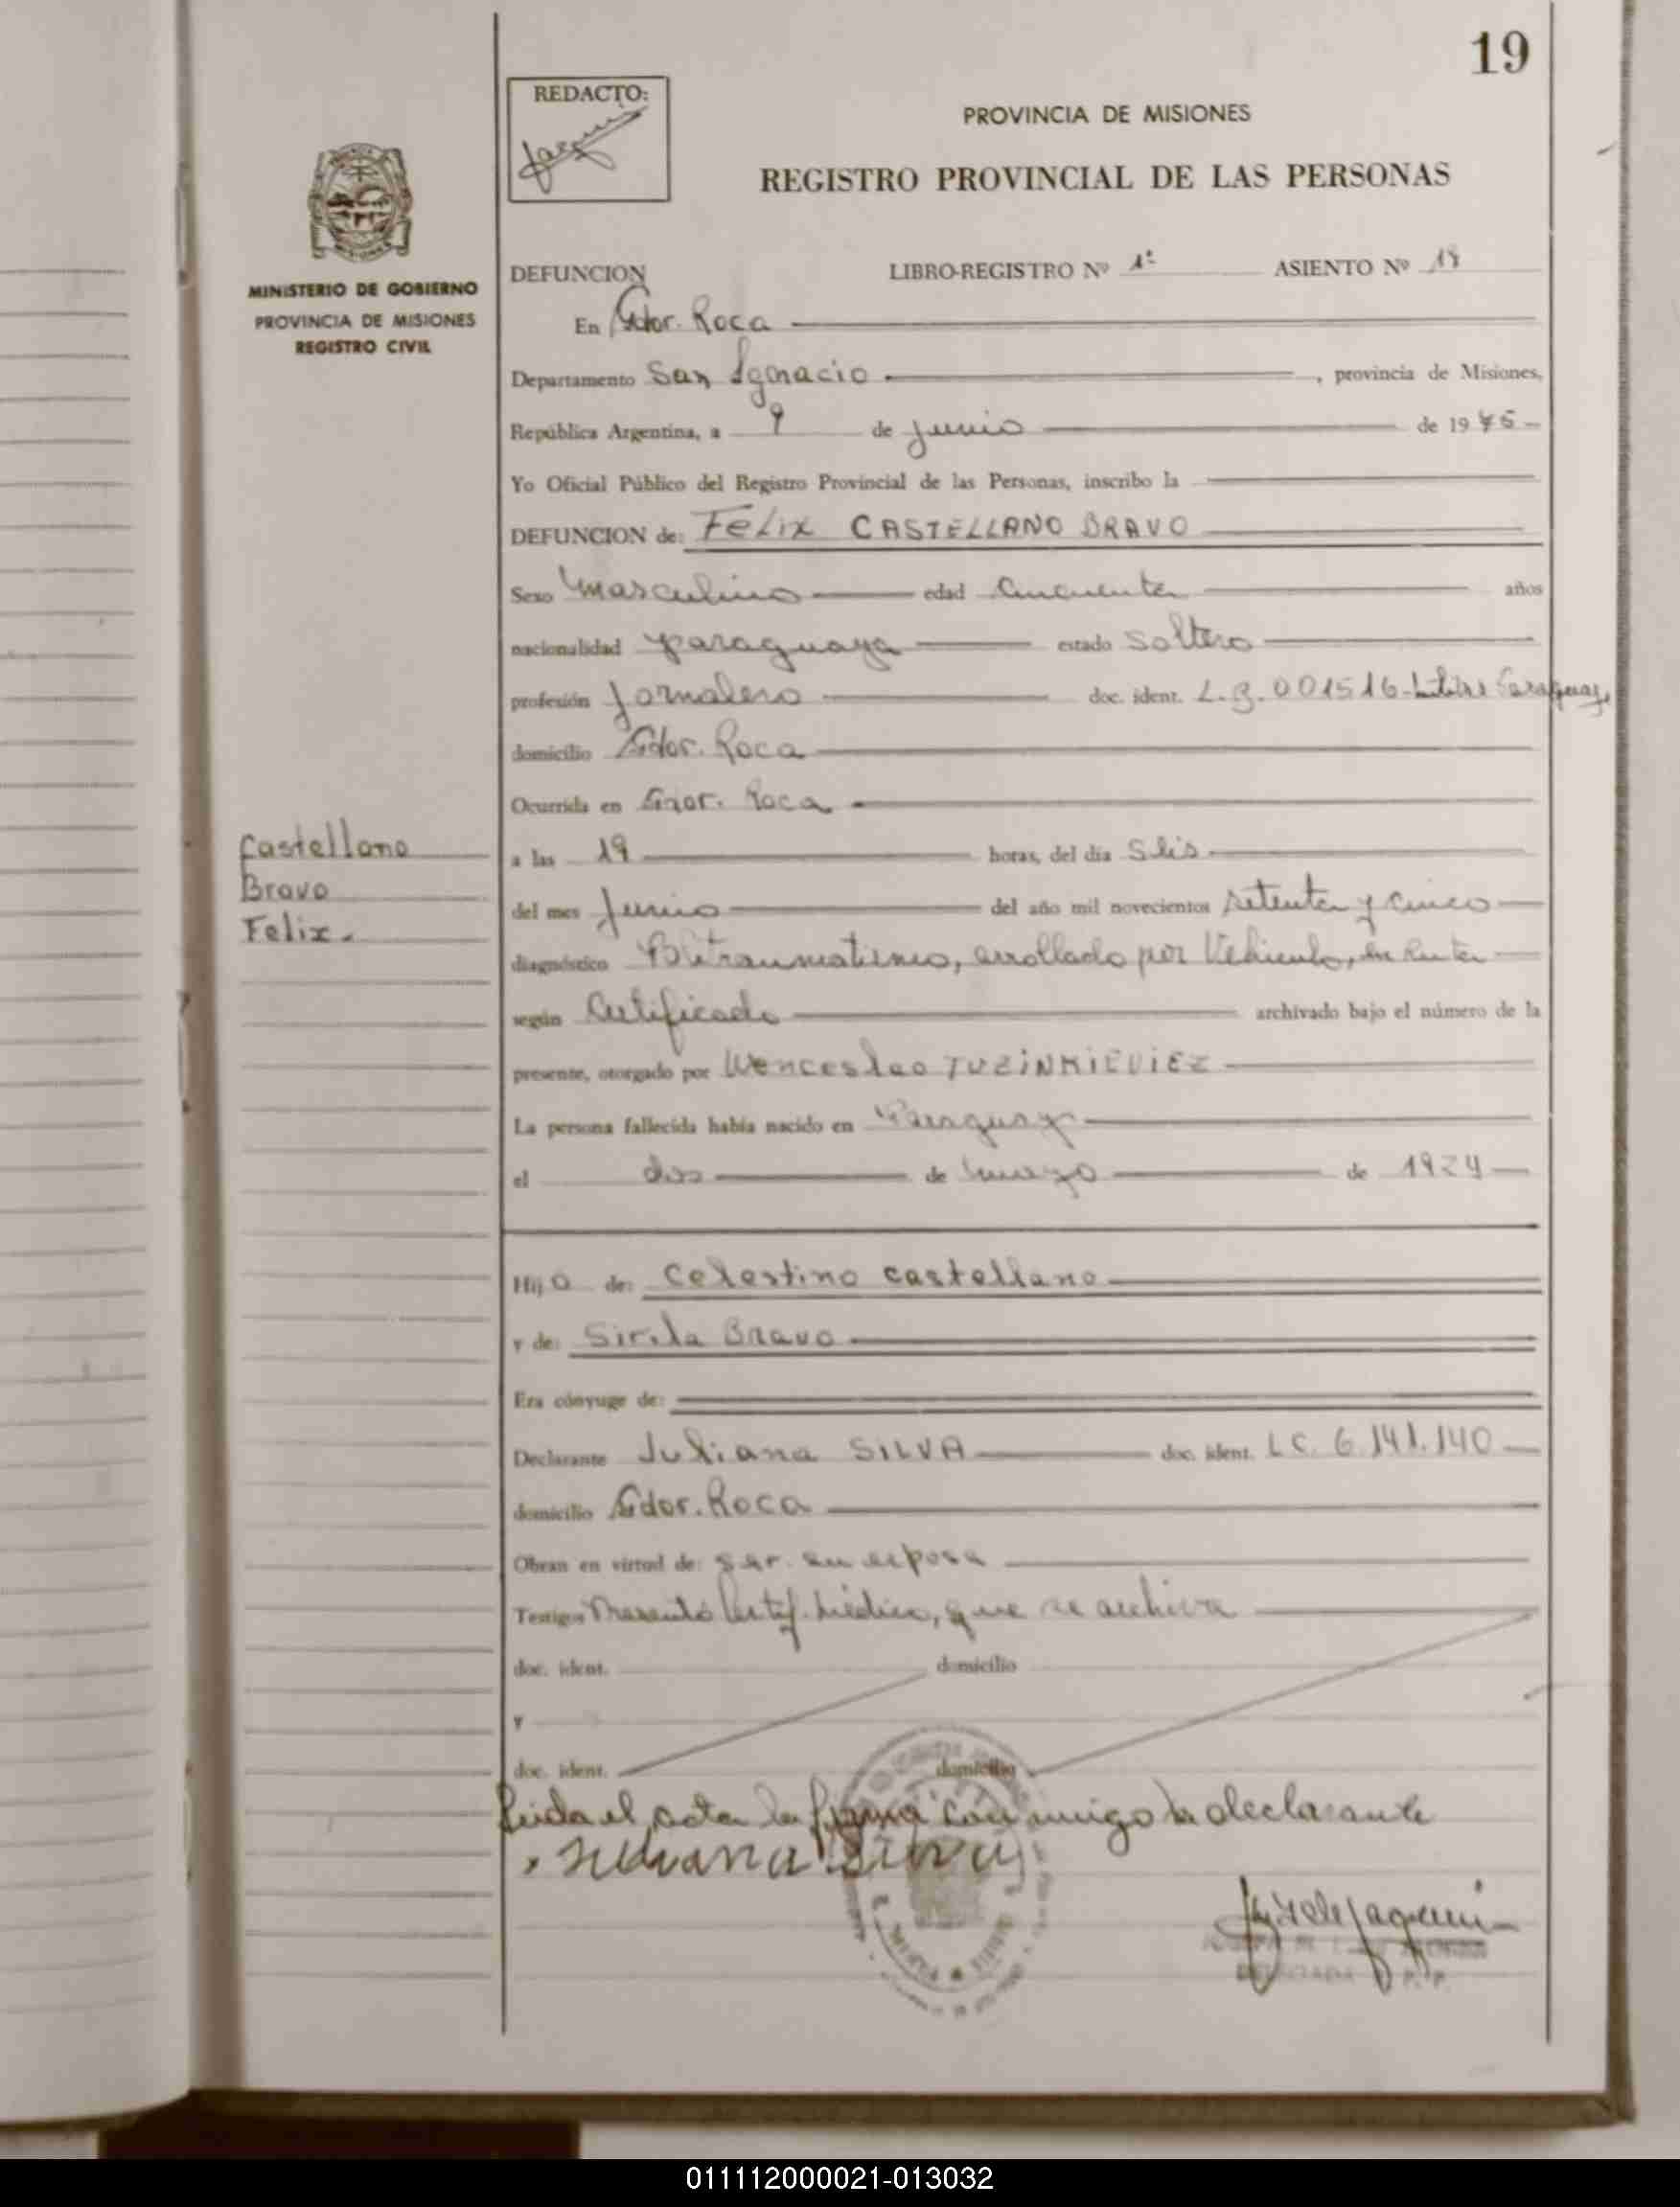 19
REDACTO:
PROVINCIA DE MISIONES
REGISTRO PROVINCIAL DE LAS PERSONAS
MINISTERIO DE GOBIERNO
PROVINCIA DE MISIONES
REGISTRO CIVIL
DEFUNCION LIBRO-REGISTRO Nº 1º ASIENTO Nº 18
En Gdor. Roca
Departamento San Ignacio, provincia de Misiones,
República Argentina, a 9 de junio de 1975
Yo Oficial Público del Registro Provincial de las Personas, inscribo la
DEFUNCION de: Felix CASTELLANO BRAVO
Sexo masculino edad Cincuenta años
nacionalidad paraguaya estado Soltero
profesión Jornalero doc. ident. 001516
domicilio Gdor. Roca
Ocurrida en Gdor. Roca
Castellano
Bravo
Felix.
a las 19 horas, del día Seis
del mes Junio del año mil novecientos setenta y cinco
diagnóstico Politraumatismo, arrollado por Vehiculo, en Ruta
según Certificado archivado bajo el número de la
presente, otorgado por Wenceslao TUZINKIEVIEZ
La persona fallecida había nacido en Paraguay
el dos de de 1924
Hijo de: Celestino Castellano
y de: Sirila Bravo
Era cónyuge de:
Declarante Juliana SILVA doc. ident. LC. 6.141.140
domicilio Gdor. Roca
Obran en virtud de: ser su esposa
Testigos Presentó Certif. Médico, que se archiva
doc. ident. domicilio
y
doc. ident. domicilio
Leida el acta la firma conmigo la declarante
Juliana Silva
011112000021-013032